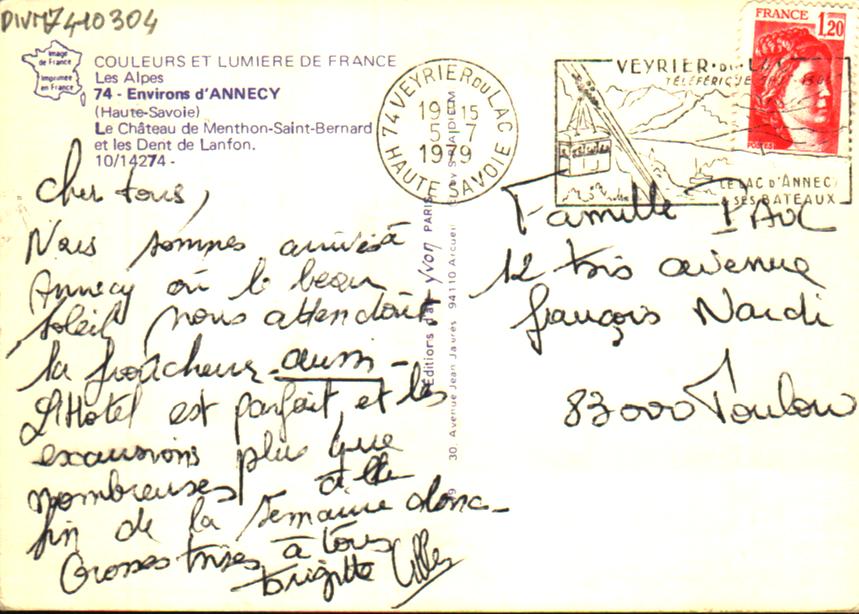 DIVM7410304
Image de France
Imprimée en France
COULEURS ET LUMIERE DE FRANCE
Les Alpes
74 - Environs d'ANNECY
(Haute-Savoie)
Le Château de Menthon-Saint-Bernard
et les Dent de Lanfon.
10/14274 -
74 VEYRIER DU LAC
19H15
5-7
1979
HAUTE SAVOIE
VEYRIER-DU-LAC
TÉLÉFÉRIQUE
LE LAC D'ANNECY
& SES BATEAUX
FRANCE 1,20
POSTES
Editions d'art Yvon PARIS
30, Avenue Jean Jaurès 94110 Arcueil
Cher tous,
Nous sommes arrivés à
Annecy où le beau
soleil nous attendait
la fraîcheur aussi -
L'Hotel est parfait, et les
excursions plus que
nombreuses à la
fin de la semaine donc -
Grosses bises à tous
Brigitte Gilles
Famille
12 bis avenue
françois Nardi
83000 Toulon